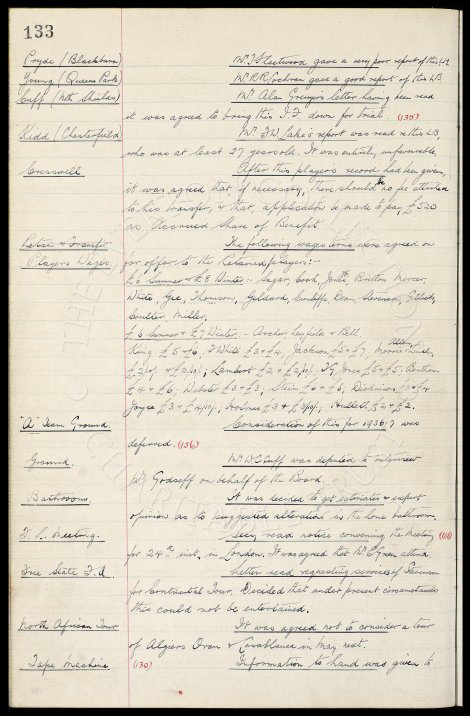 133
Pryde (Blackburn) Mr. J Fleetwood gave a very poor report of this L.H.
Young (Queens Park) Mr. R R Cochran gave a good report of this L.B.
Cuff (Nth Shields) Mr. Alan Grenyer's letter having been read
it was agreed to bring this I.F. down for trial. (135)
Kidd (Chesterfield) Mr. J W Lake's report was read re this L.B,
who was at least 27 years old. It was entirely unfavourable
Cresswell After this players record had been given,
it was agreed that, if necessary, there should be no fee attached
to his transfer, & that, application be made to pay £520
as Accrued Share of Benefit.
Retain & Transfer The following wages terms were agreed on
Players Wages. for offer to the Retained players:-
£6 Summer & £8 Winter:- Sagar, Cook, Jones, Britton, Mercer,
White, Gee, Thomson, Geldard, Cunliffe, Dean, Stevenson, Gillick,
Coulter Miller.
£6 Summer & £7 Winter. - Archer, Leyfield & Bell.
King £5 & £6, J White £3 & £4, Jackson £5 & £7, Morris
Lambert £2 & £2/10/-. T G Jones £5 & £5, Bentham
£4 & £6, Webster £3 & £3, Stein £6 & £6, Dickinson £3 & £4
Joyce £3 & £4/10/-, Hullett £2 & £2.
"A" Team Ground. Consideration of this for 1936-7 was
deferred. (136)
Ground. Mr. W C Cuff was deputed to interview
Mr. Godseff on behalf of the Board.
Bathroom. It was decided to get estimates & expert
opinion as to suggested alterations in the home bathroom.
F. L. Meeting. Secy. read notice concerning the Meeting
for 24th inst. in London. It was agreed that Mr. Green attend
Free State F.A. Letter read, requesting services of Stevenson
for Continental Tour. Decided that under present circumstances
this could not be entertained.
North African Tour It was agreed not to consider a tour
of Algiers Oran & Casablanca in May next.
Tape Machine (130) Information to hand was given to